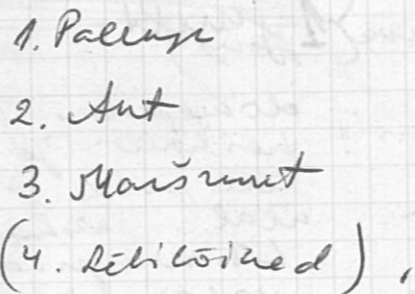 1. Palluja
2. Ant
3. Maršruut
(4. Läbilõiked),